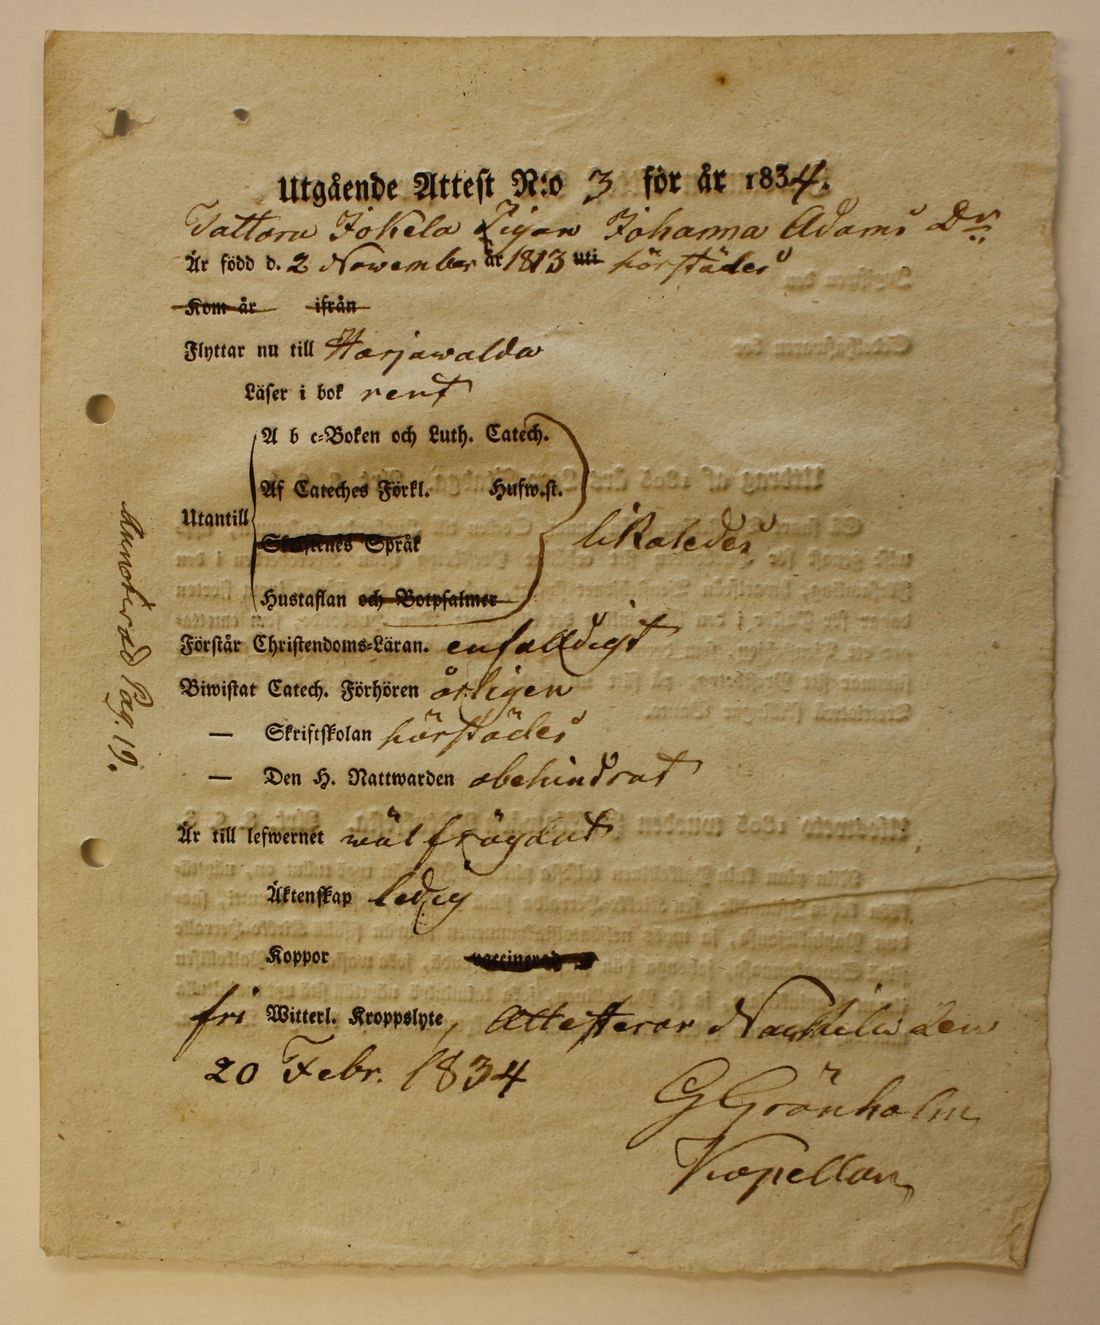 Utgående Attest N:o 3 för år 1834.
Tattara Jokela Pigan Johanna Adams Dr
Är född d. 2 November år 1813 uti härstädes
Kom år ifrån
Flyttar nu till Harjawalda
Läser i bok rent
A b c=Boken och Luth. Catech.
Af Cateches Förkl. Hufw.st.
Utantill
Språk
likaledes
Hustaflan och Botpsalmer
Förstår Christendoms=Läran. enfalldigt
Biwistat Catech. Förhören årligen
— Skriftskolan härstädes
— Den H. Nattwarden obehindrat
Är till lefwernet wälfrägdat
Äktenskap ledig
Koppor vaccinerad
fri Witterl. Kroppslyte, Attesterar Nackila den
20 Febr. 1834
G Grönholm
Capellan
Annoterad Pag. 19.